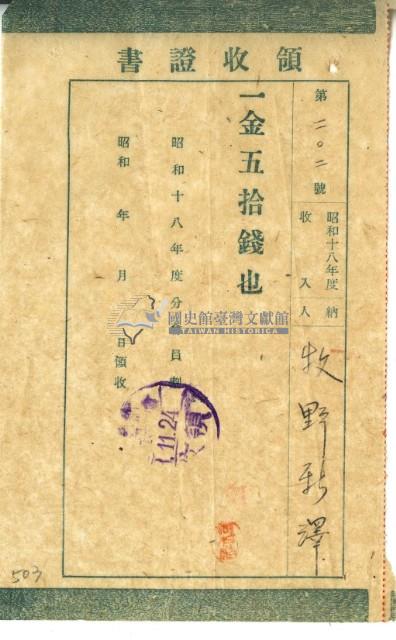 領收證書
第二〇二號
昭和十八年度
收入
納人
牧野新澤
一金五拾錢也
昭和十八年度分
員
昭和 年 月 日領收
國史館臺灣文獻館
TAIWAN HISTORICA
11.24
領
503